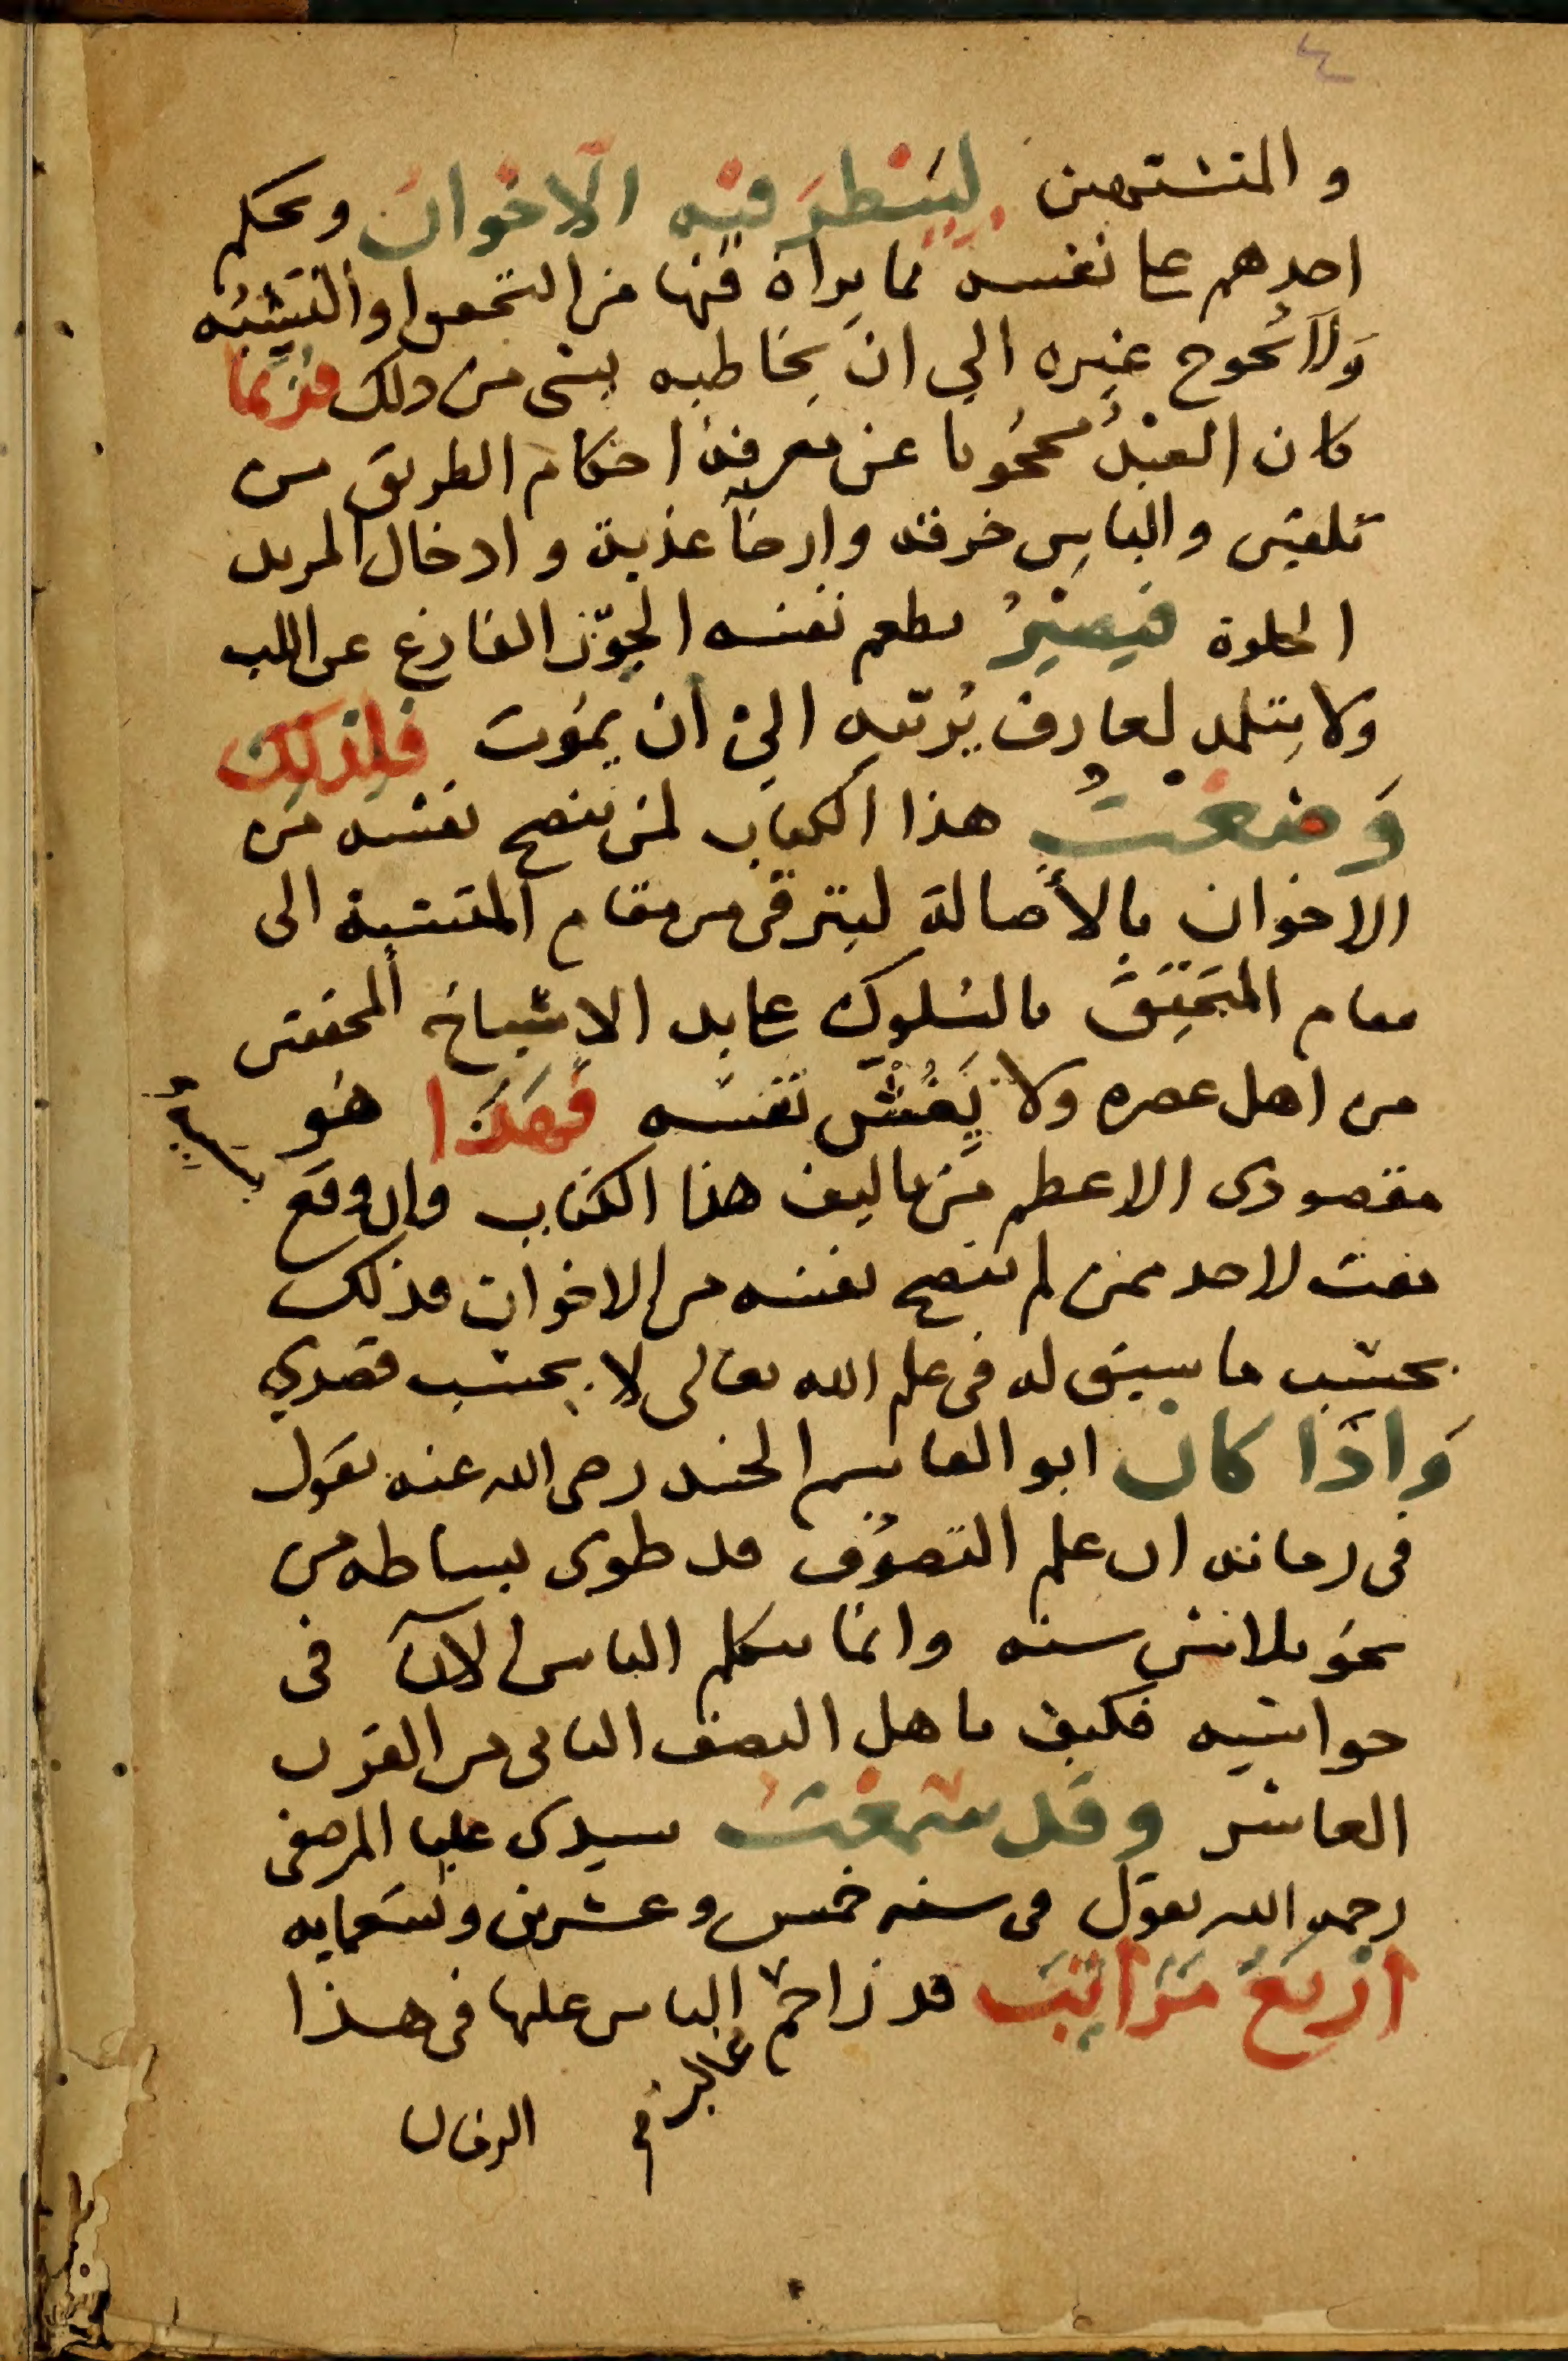 ٤
والمتشبهين لينظر فيه الاخوان ويحكم
احدهم على نفسه بما يراه فيها من التحقق او التشبه
ولا يحوج غيره الى ان يخاطبه بشى من ذلك فربما
كان العبد محجوبا عن معرفة احكام الطريق من
تلقين والباس خرقه وارخآ عذبة وادخال المريد
الخلوة فيصير يطعم نفسه الجوز الفارغ عن اللب
ولا يتلمد لعارف يربيه الى ان يموت فلذلك
وضعت هذا الكتاب لمن ينصح نفسه من
الاخوان بالأصالة ليترقى من مقام المتشبه الى
مقام المتحقق بالسلوك على يد الاشياخ المحققين
من اهل عصره ولا يغش نفسه فهذا هو
مقصودى الاعظم من تاليف هذا الكتاب وان وقع
مقت لاحد ممن لم ينصح نفسه من الاخوان فذلك
بحسب ما سبق له فى علم الله تعالى لا بحسب قصدي
واذا كان ابو القاسم الجنيد رضى الله عنه يقول
فى زمانه ان علم التصوف قد طوى بساطه من
نحو ثلاثين سنه وانما يتكلم الناس الآن فى
حواشيه فكيف باهل النصف الثانى من القرن
العاشر وقد سمعت سيدى عليا المرصفى
رحمه الله يقول فى سنه خمس وعشرين وتسعمايه
اربع مراتب قد زاحم الناس عليها فى هذا
الزمان